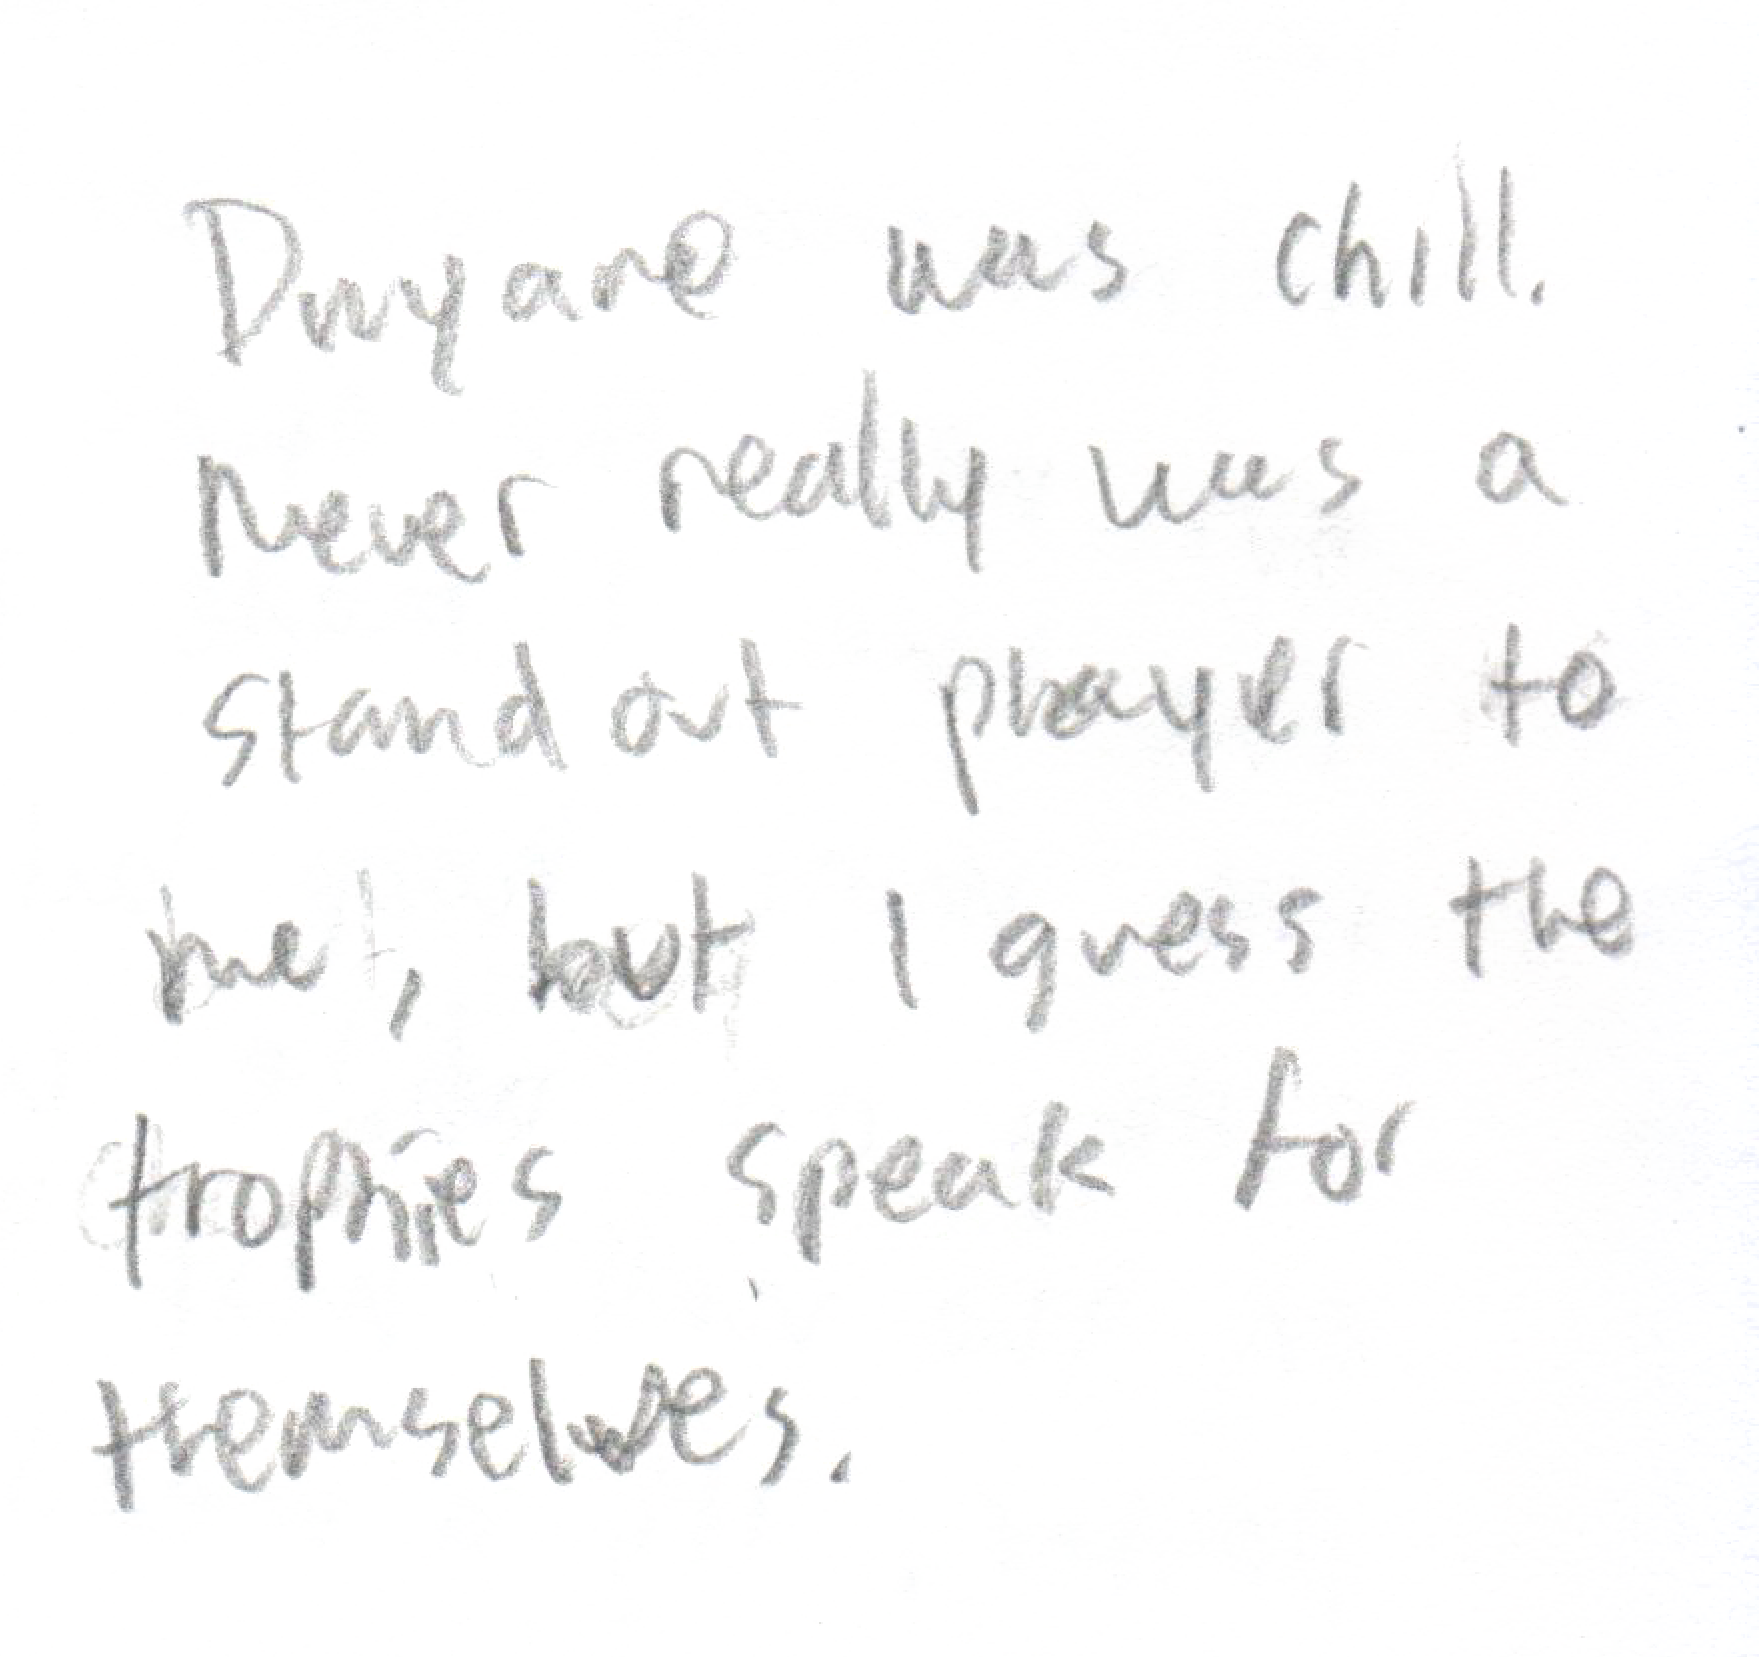 Dwyane was chill.
Never really was a
stand out player to
me, but I guess the
trophies speak for
themselves.